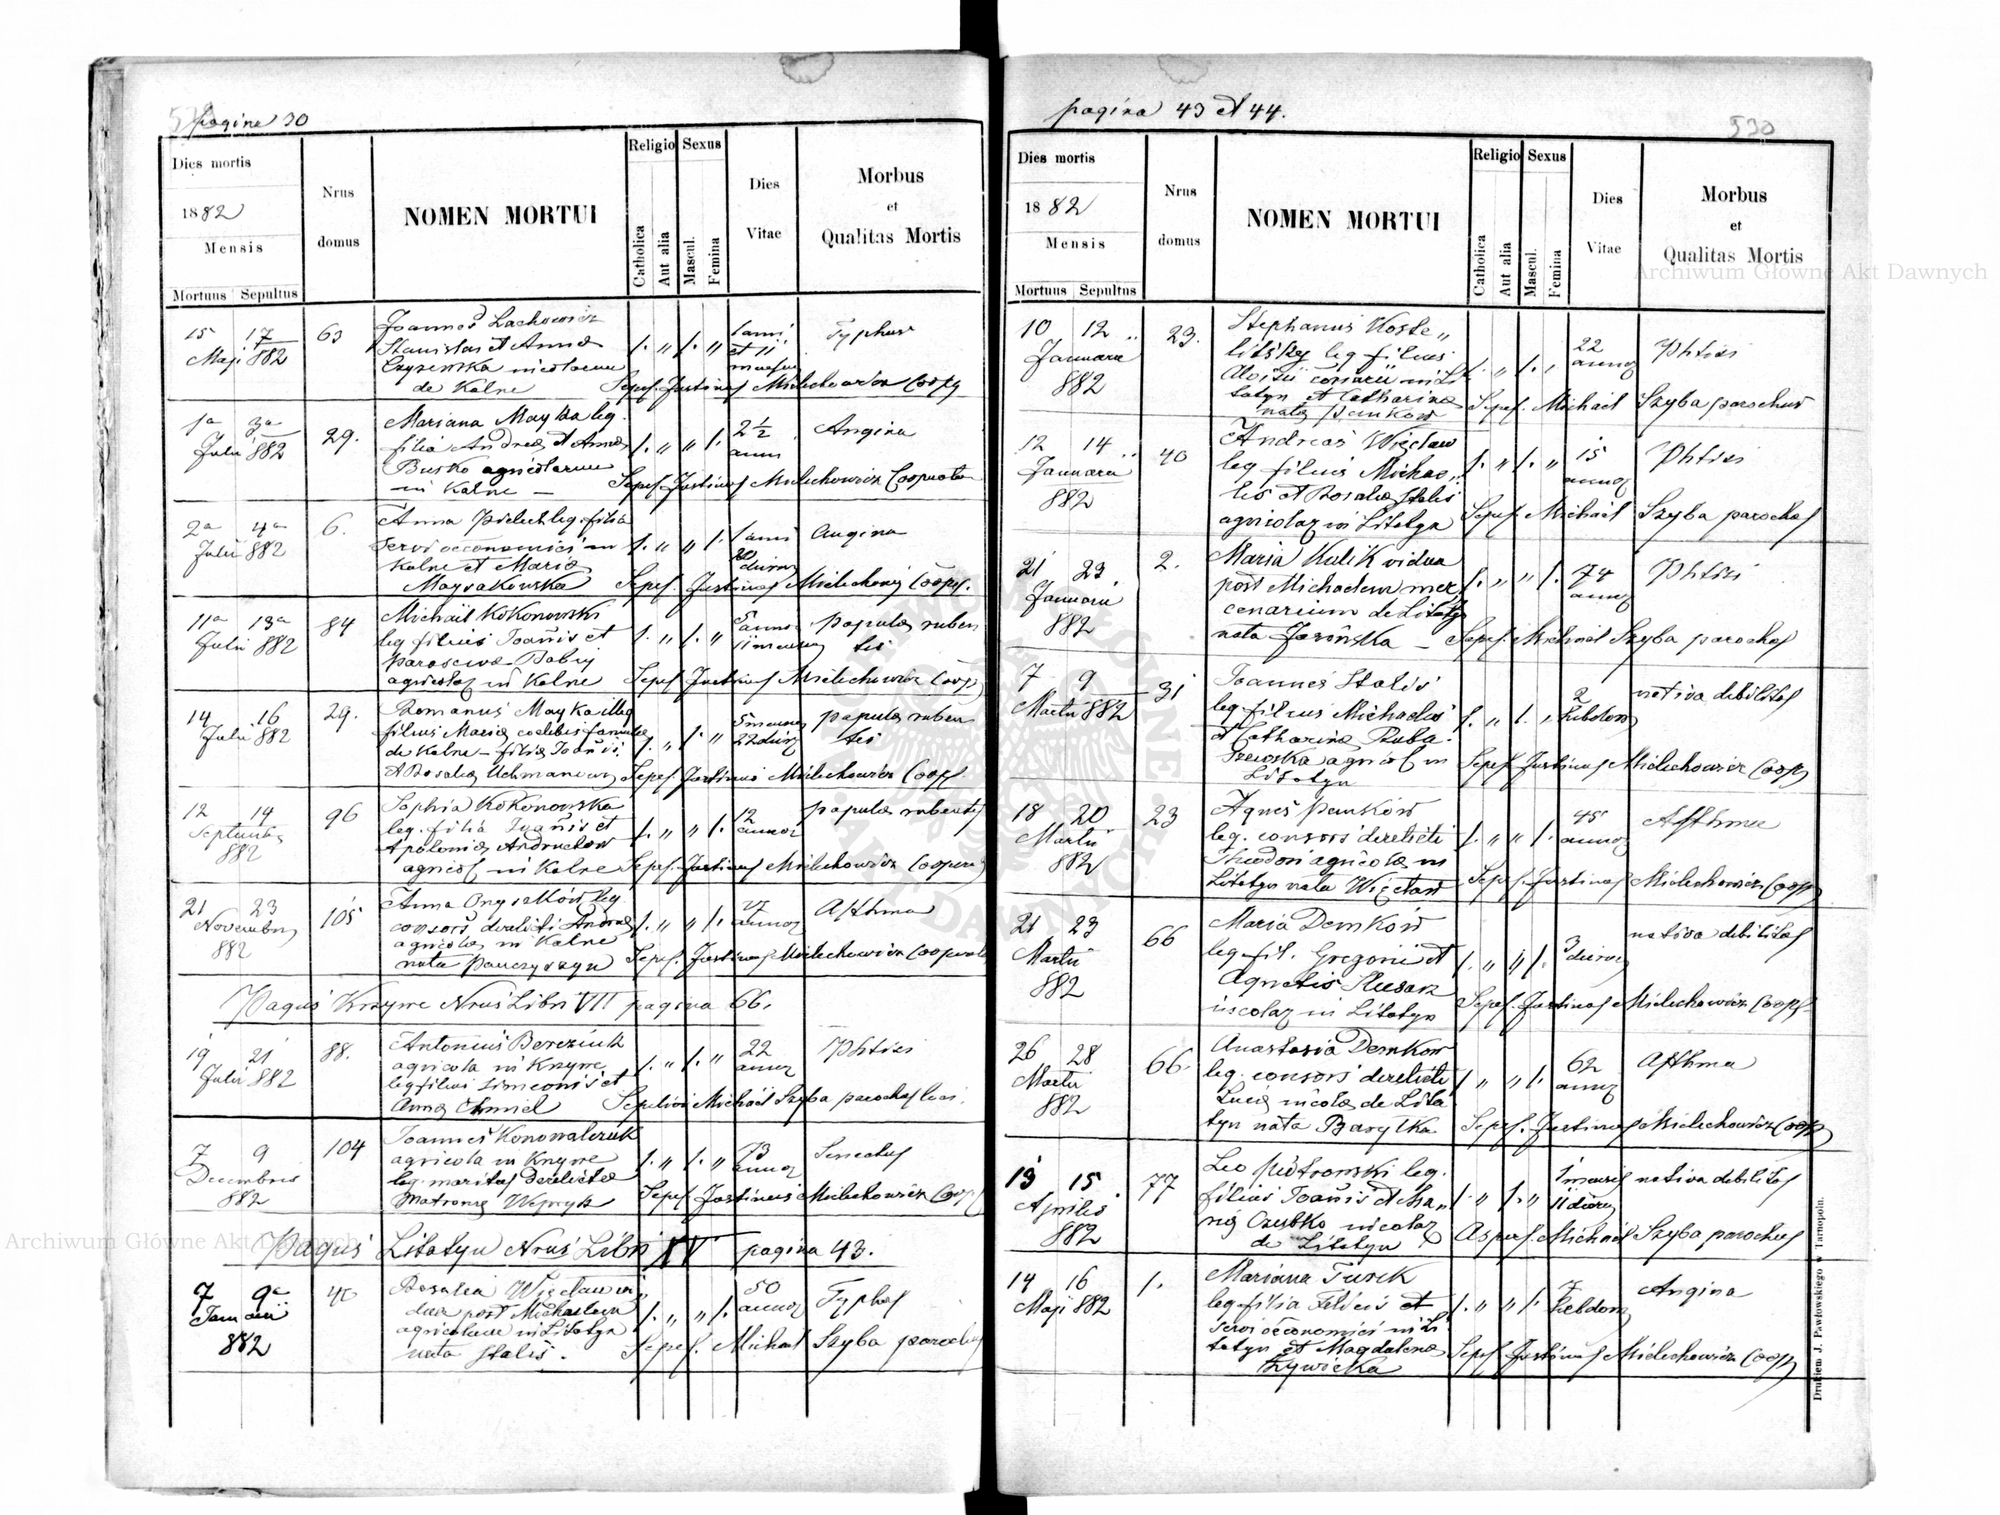 pagina 30
Dies mortis
1882
Mensis
Mortuus Sepultus
Nrus domus
NOMEN MORTUI
Religio
Catholica
Aut alia
Sexus
Mascul.
Femina
Dies Vitae
Morbus et Qualitas Mortis
15 17 63 Joannes Lachowicz 1. „ 1. „ 1 anni Typhus
Maji 882 Stanislai et Annae et 11
de Kalne Sepel. Justinus Mielechowicz Coop
1a 3a 29. Mariana Mayka leg. 1. „ „ 1. 2½ Angina
Julii 882 filia Andreae et Annae anni
Busko agricolarum
in Kalne — Sepel. Justinus Mielechowicz Cooperator
2a 4a 6. Anna leg. filia 1. „ „ 1. 1 anni Angina
Julii 882 servi oeconomici in
Kalne et Maria
Maysakowska Sepel. Justinus Mielechowicz Cooper.
11a 13a 84 Michael Kokonowski 1. „ 1. „ 5 annor papulae ruben
Julii 882 leg filius Joannis et 11 mensium tis
Parasceva Babij
agricolar in Kalne Sepel Justinus Mielechowicz Coop
14 16 29. Romanus Mayka illeg 1. „ 1 „ 5 mens papulae ruben
Julii 882 filius Maria coelibis famulae 22 dier tis
de Kalne — filiae Joannis
et Rosalia Uchmanowicz Sepel Justinus Mielechowicz Coop
12 14 96 Sophia Kokonowska 1. „ „ 1. 12 papulae rubentis
Septembris leg. filia Joannis et annor
882 Apolonia Andruchow
agricol in Kalne Sepel. Justinus Mielechowicz Cooper
21 23 105 Anna Onyskow leg. 1. „ „ 1. Asthma
Novembris consors derelicti Andreae annor
882 agricolae in Kalne
nata Panczyszyn Sepel. Justinus Mielechowicz Cooperator
Pagus Krzywe Nrus Libri VII pagina 66.
19 21 88. Antonius Bereziuk 1. „ 1. „ 22 Phtisi
Julii 882 agricola in Krzywe annor
leg filius Simeonis et
Anna Chmiel Sepelivi Michael Szyba parochus loci.
7 9 104 Joannes Konowalczuk 1. „ 1. „ 73 Senectus
Decembris agricola in Krzywe annor
882 leg. maritus derelictae
Matronae Sepel Justinus Mielechowicz Coop
Pagus Litatyn Nrus Libri XV pagina 43.
7 9a 40 Rosalia Więcław vi 1. „ „ 1. 50 Typhus
Januarii dua post Michaelem annor
882 agricolam in Litatyn
nata Stalis. Sepel. Michael Szyba parochus
pagina 43 et 44.
530
Dies mortis
1882
Mensis
Mortuus Sepultus
Nrus domus
NOMEN MORTUI
Religio
Catholica
Aut alia
Sexus
Mascul.
Femina
Dies Vitae
Morbus et Qualitas Mortis
10 12 23. Stephanus Koste„ 1. „ 1. „ 22 Phtisi
Januarii leg filius annor
882 Aloisii in Li
tatyn et Catharina
nata Pańków Sepel. Michael Szyba parochus
12 14 40 Andreas Więcław 1. „ 1. „ 15 Phtisi
Januarii leg filius Michae„ annor
882 lis et Rosalia Stalis
agricolar in Litatyn Sepel Michael Szyba parochus
21 23. 2. Maria Kulik vidua 1. „ „ 1. 74 Phtisi
Januarii post Michaelem mer annor
882 cenarium de Litatyn
nata — Sepel. Michael Szyba parochus
7 9 31 Joannes Stalis 1. „ 1. „ 2 nativa debilitas
Martii 882 leg filius Michaelis hebdom
et Catharina
agricol in
Litatyn Sepel Justinus Mielechowicz Coop
18 20 23 Agnes Pańków 1. „ „ 1. 45 Asthma
Martii leg. consors derelicti annor
882 Theodori agricolae in
Litatyn nata Więcław Sepel Justinus Mielechowicz Coop
21 23 66 Maria Demków 1. „ „ 1. 3 nativa debilitas
Martii leg. fil. Gregorii et dier
882 Agnetis
in Litatyn Sepel. Justinus Mielechowicz Coop
26 28 66. Anastasia Demkow 1 „ „ 1. 62 Asthma
Martii leg. consors derelicti annor
882 de Lita
tyn nata Barylka Sepel. Justinus Mielechowicz Coop
13 15 77 Leo Piotrowski leg. 1. „ 1. „ 1 mensis nativa debilitas
Aprilis filius Joannis et Ma„ 11 dier
882 ria Czubko
de Litatyn Aspers. Michael Szyba parochus
14 16 1. Mariana Turek 1. „ „ 1. 7 Angina
Maji 882 leg. filia Felicis et hebdom
servi oeconomici in Li
tatyn et Magdalena
Żywicka Sepel Justinus Mielechowicz Coop
Drukiem J. Pawłowskiego w Tarnopolu.
Archiwum Główne Akt Dawnych
Archiwum Główne Akt Dawnych